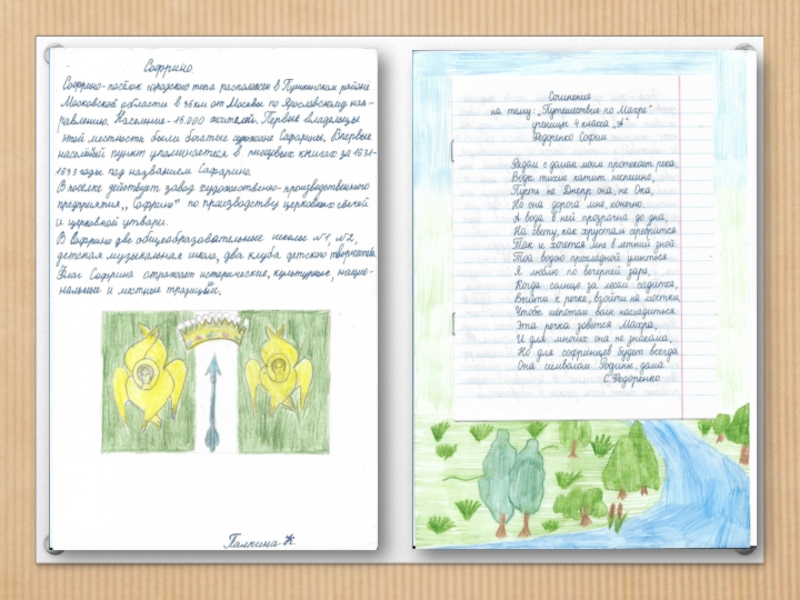 Софрино.
Софрино-посёлок городского типа расположен в Пушкинском районе
Московской области в 36 км от Москвы по Ярославскому нап-
равлению. Население - 15.000 жителей. Первые владельцы
этой местности были богатые сурожане Сафарины. Впервые
населёный пункт упоминается в писцовых книгах за 1631-
1633 годы под названием Сафарино.
В посёлке действует завод художественно-производственного
предприятия ,,Софрино" по производству церковных свечей
и церковной утвари.
В Софрино две общеобразовательные школы №1, №2,
детская музыкальная школа, два клуба детского творчества.
Флаг Софрина отражает исторические, культурные, нацио-
нальные и местные традиций.
Палкина К.
Сочинение
на тему: „Путешествие по Махре"
ученицы 4 класса „А"
Федоренко Софии
Рядом с домом моим протекает река,
Воды тихие катит неспешно,
Пусть не Днепр она, не Ока,
Но она дорога мне, конечно.
А вода в ней прозрачна до дна,
На свету, как хрусталь серебрится.
Так и хочется мне в летний зной
Той водою прохладной умыться.
Я люблю по вечерней заре,
Когда солнце за лесом садится,
Выйти к речке, взойти на мостки,
Чтобы шёпотом волн насладиться.
Эта речка зовётся Махра,
И для многих она не знакома,
Но для софринцев будет всегда
Она символом Родины, дома.
С. Федоренко